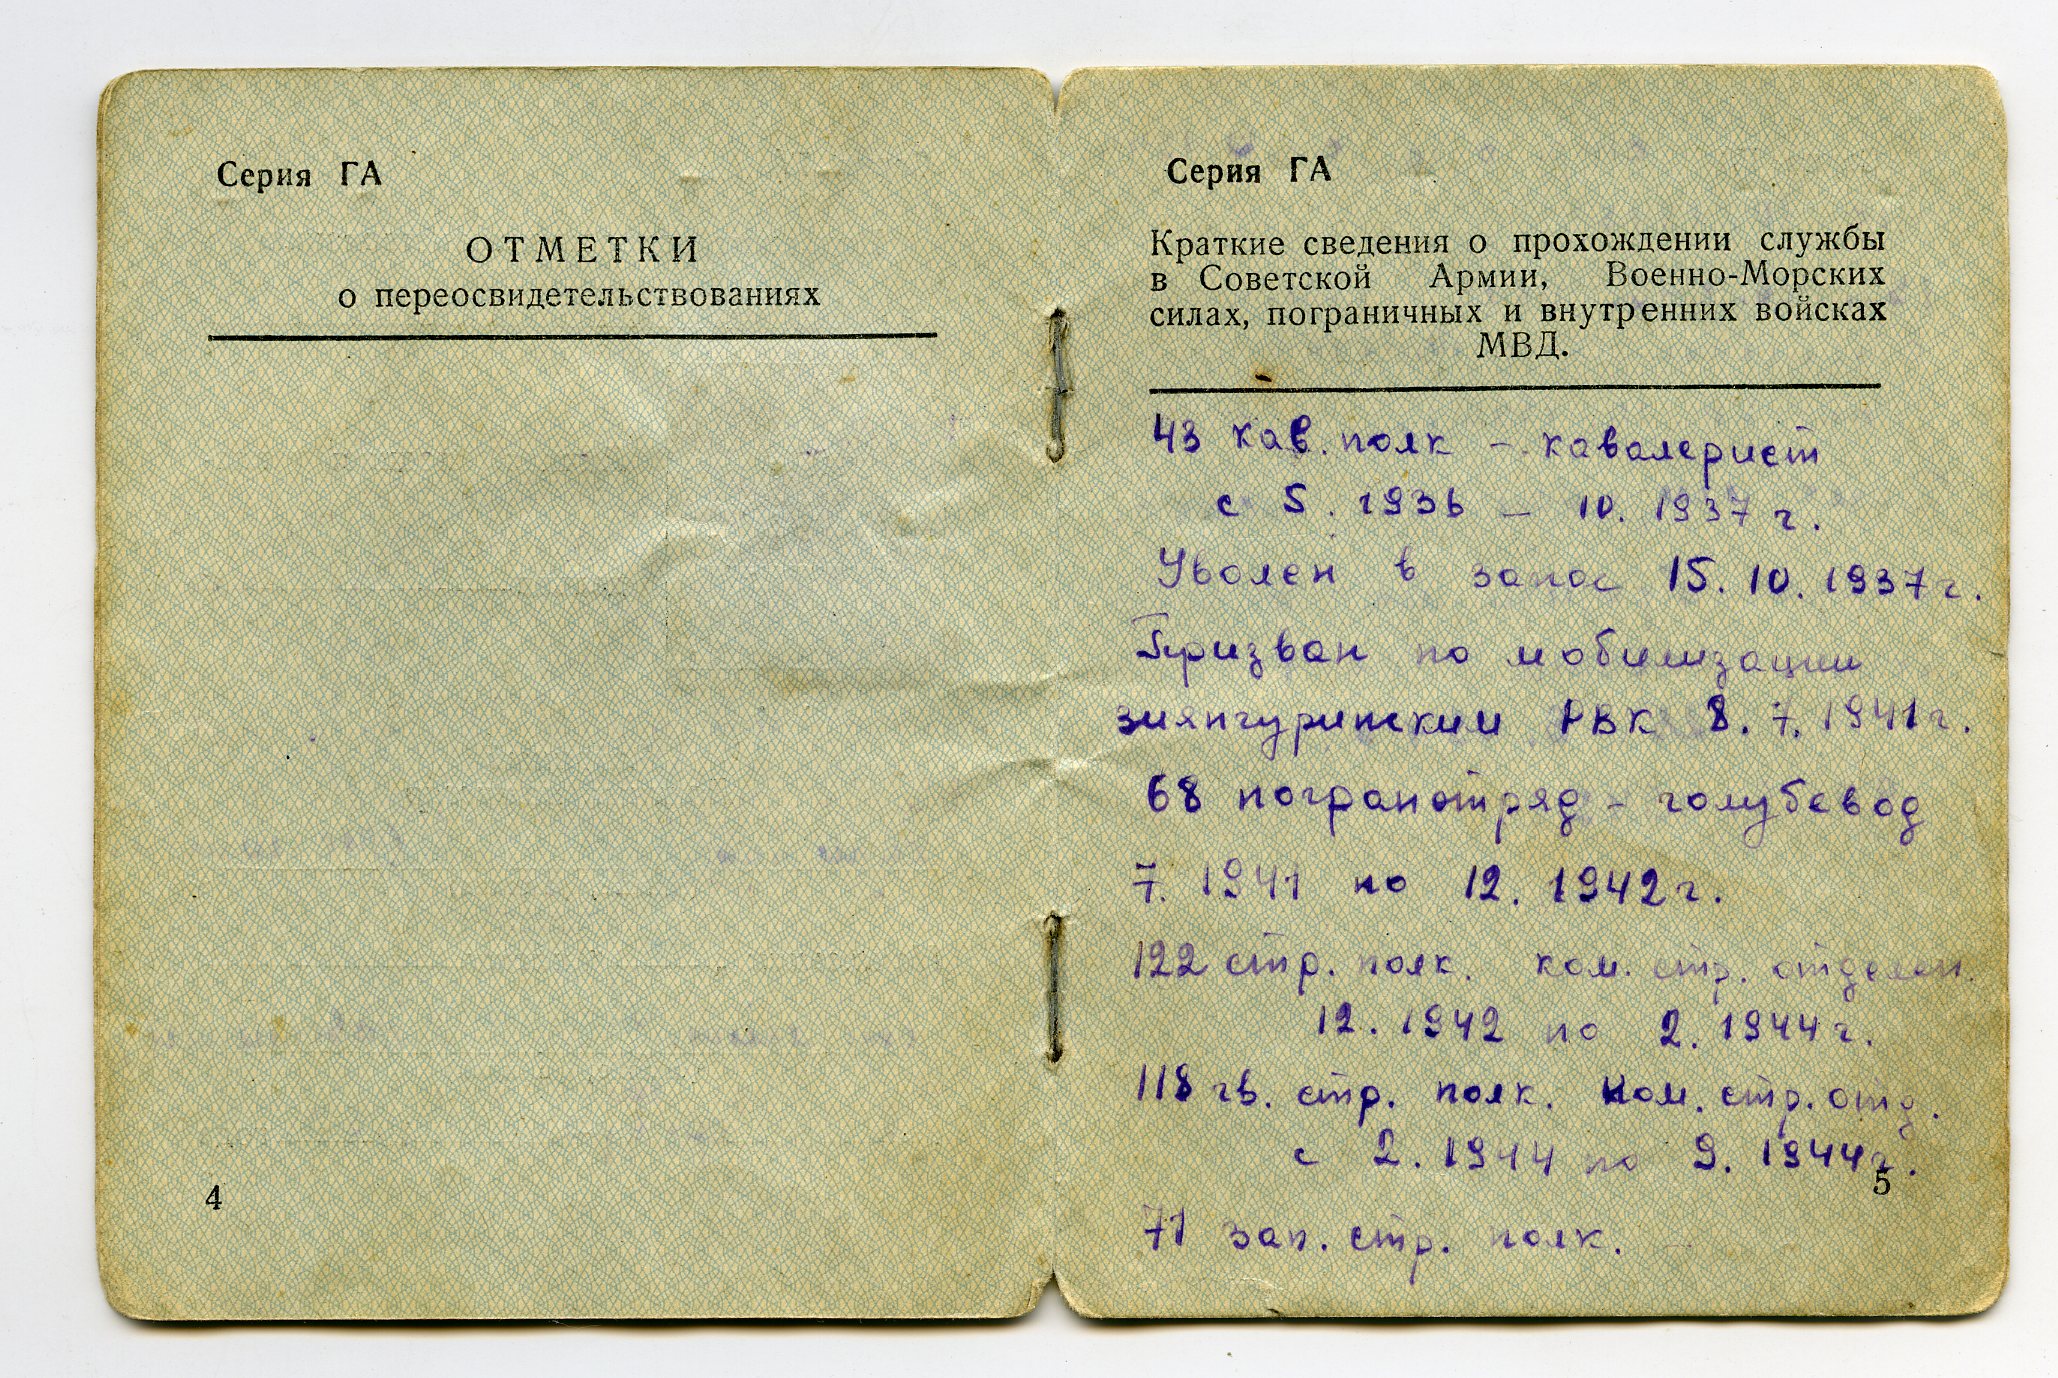 Серия ГА
ОТМЕТКИ
о переосвидетельствованиях
4
Серия ГА
Краткие сведения о прохождении службы
в Советской Армии, Военно-Морских
силах, пограничных и внутренних войсках
МВД.
43 кав. полк – кавалерист
с 5. 1936 – 10. 1937 г.
Уволен в запас 15. 10. 1937 г.
Призван по мобилизации
зиянгуринским РВК 8. 7. 1941 г.
68 погранотряд – голубевод
7. 1941 по 12. 1942 г.
122 стр. полк. ком. стр. отделен.
12. 1942 по 2. 1944 г.
118 гв. стр. полк. ком. стр. отд.
с 2. 1944 по 9. 1944 г.
5
71 зап. стр. полк.